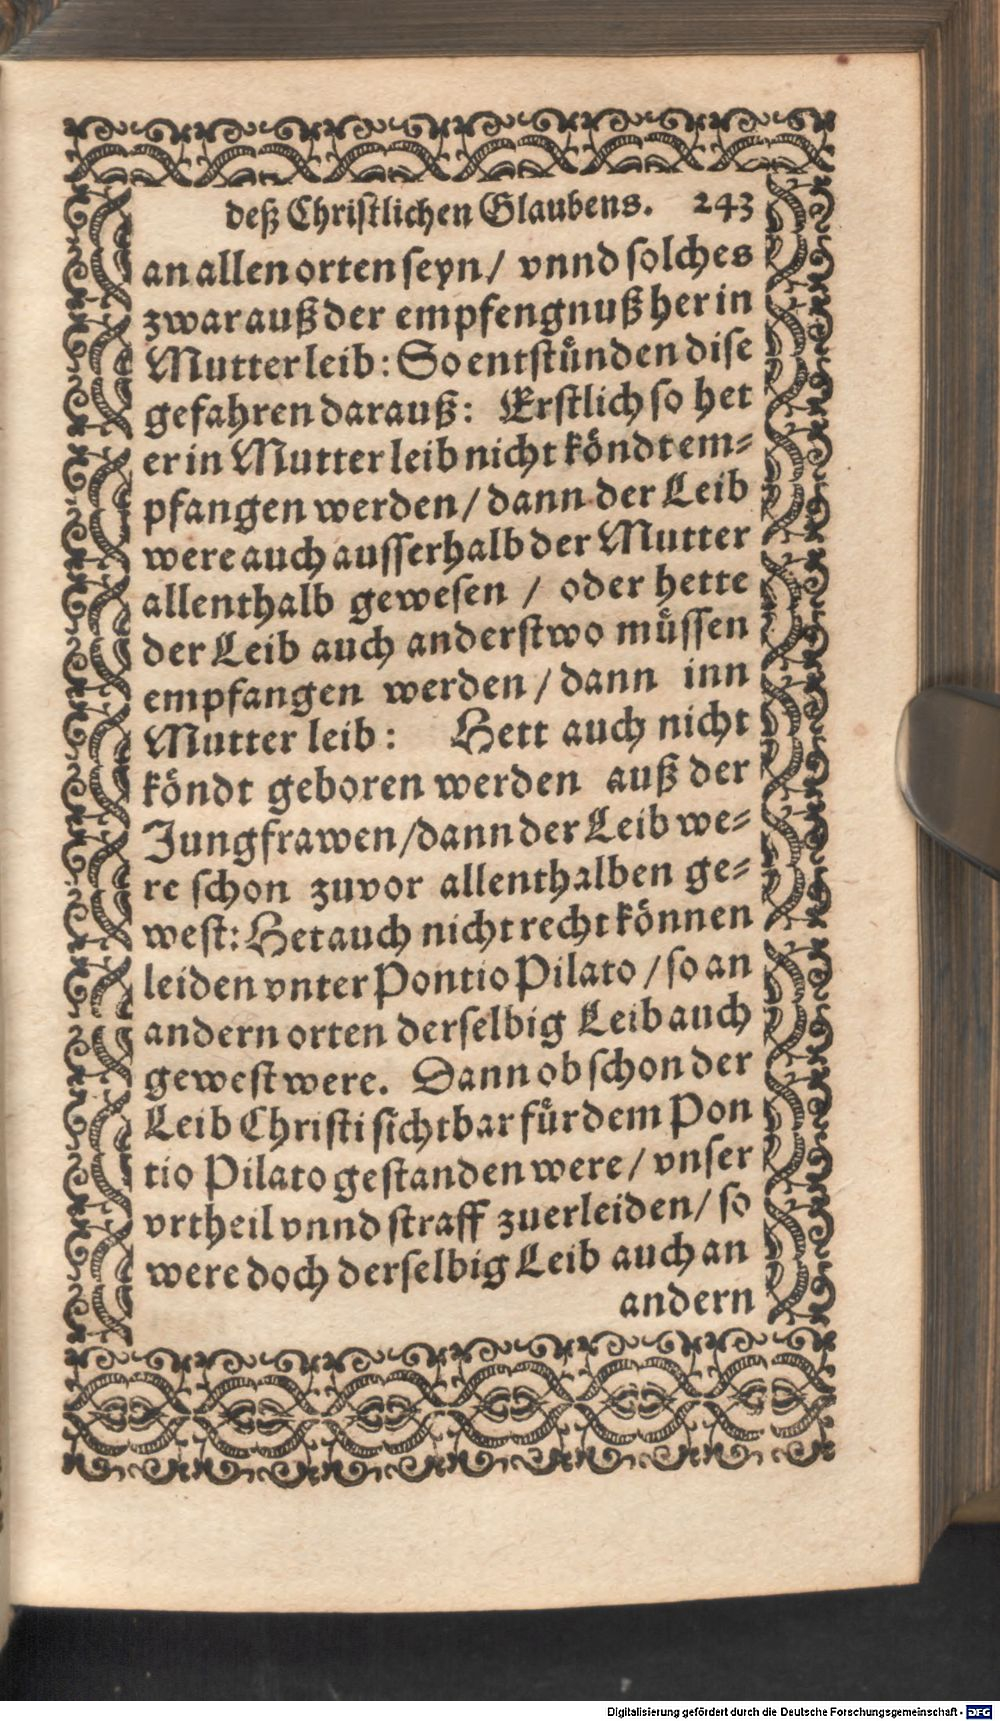 deß Christlichen Glaubens. 243
an allen orten seyn/ vnnd solches
zwar auß der empfengnuß her in
Mutter leib: So entstuͤnden dise
gefahren darauß: Erstlich so het
er in Mutter leib nicht koͤndt em⸗
pfangen werden/ dann der Leib
were auch ausserhalb der Mutter
allenthalb gewesen / oder hette
der Leib auch anderstwo muͤssen
empfangen werden/ dann inn
Mutter leib: Hett auch nicht
koͤndt geboren werden auß der
Jungfrawen/dann der Leib we⸗
re schon zuvor allenthalben ge⸗
west: Het auch nicht recht koͤnnen
leiden vnter Pontio Pilato / so an
andern orten derselbig Leib auch
gewest were. Dann ob schon der
Leib Christi sichtbar fuͤr dem Pon
tio Pilato gestanden were/ vnser
vrtheil vnnd straff zuerleiden/ so
were doch derselbig Leib auch an
andern
Digitalisierung gefördert durch die Deutsche Forschungsgemeinschaft - DFG